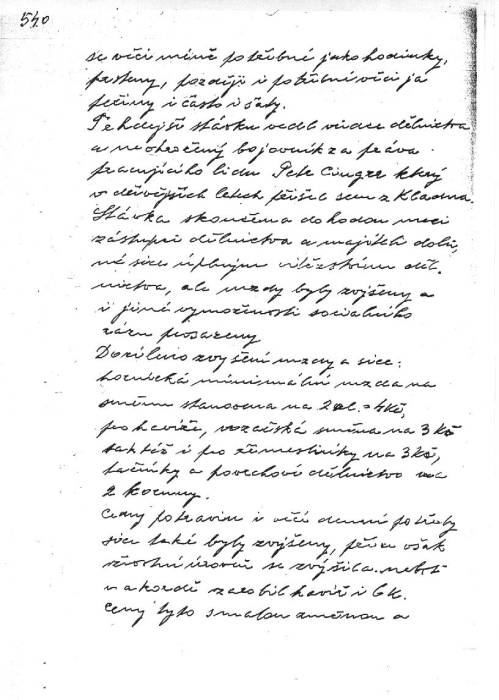 540
se věci méně potřebné jako hodinky,
prsteny, později i potřebné věci ja
peřiny i často i šaty.
Tehdejší stávku vedl vůdce dělnictva
a neohrožený bojovník za práva
pracujícího lidu Petr Cingr který
v dřívějších letech přišel sem z Kladna.
Stávka skončena dohodou mezi
zástupci dělnictva a majiteli dolů,
ne sice úplným vítězstvím děl-
nictva, ale mzdy byly zvýšeny a
i jiné vymoženosti socialního
rázu prosazeny
Docíleno zvýšení mzdy a sice:
hornická minimální mzda na
směnu stanovena na 2 zl. = 4 Kč,
pro havíře, vozačská směna na 3 Kč
taktéž i pro řemeslníky na 3 Kč,
tačníky a povrchové dělnictvo na
2 koruny.
Ceny potravin i věcí denní potřeby
sice také byly zvýšeny, přece však
životní úroveň se zvýšila neboť
v akordě zarobil havíř i 6 K.
Ceny tyto s malou změnou a